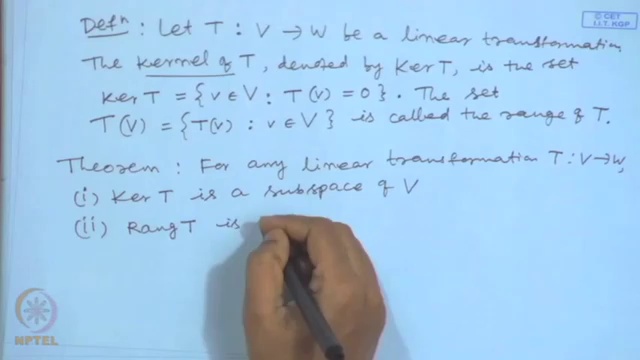 © CET
I.I.T. KGP
Defⁿ : Let T : V → W be a linear transformation
The Kernel of T, denoted by Ker T, is the set
Ker T = { v ∈ V : T(v) = 0 }. The set
T(V) = { T(v) : v ∈ V } is called the range of T.
Theorem : For any linear transformation T : V → W,
(i) Ker T is a subspace of V
(ii) Rang T is
NPTEL